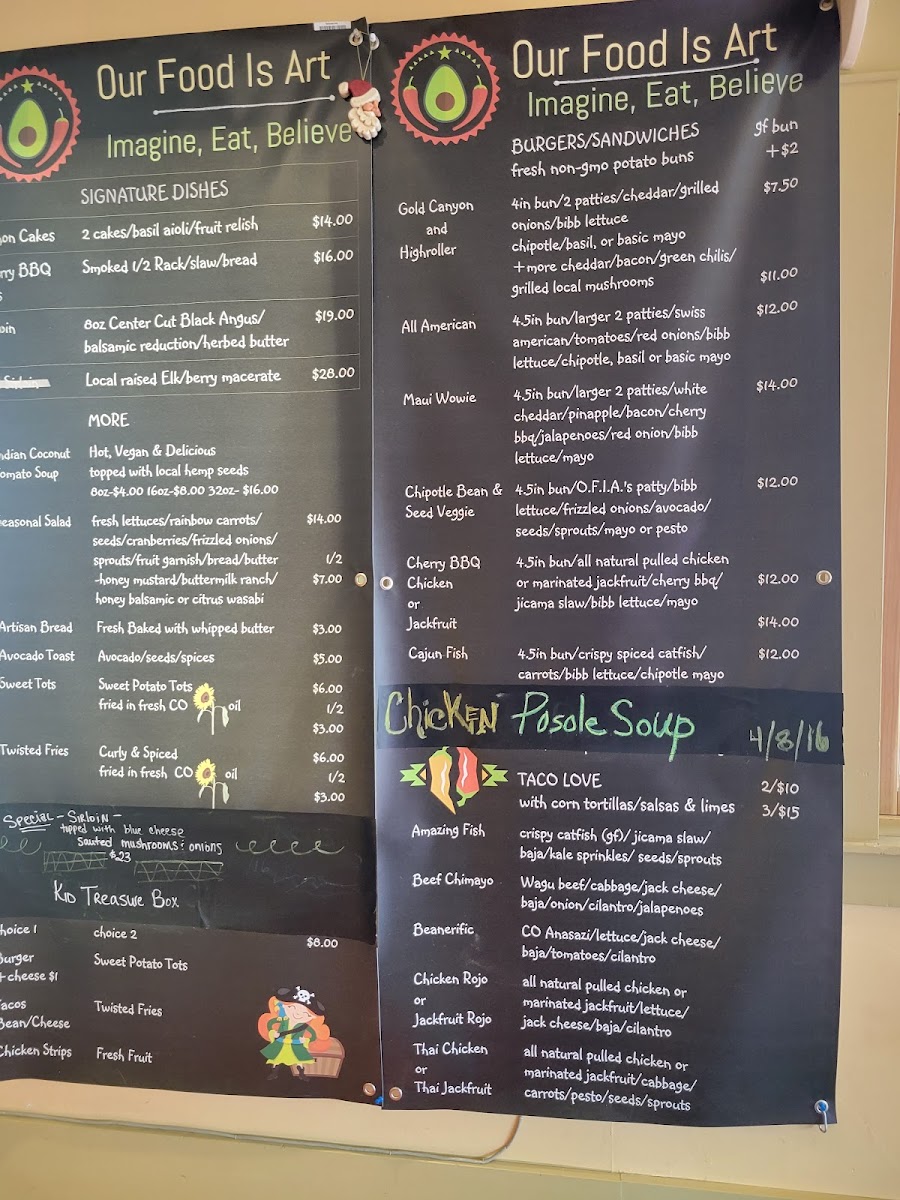 Our Food Is Art
Imagine, Eat, Believe
SIGNATURE DISHES
Cakes 2 cakes/basil aioli/fruit relish $14.00
BBQ Smoked 1/2 Rack/slaw/bread $16.00
8oz Center Cut Black Angus/ $19.00
balsamic reduction/herbed butter
Local raised Elk/berry macerate $28.00
MORE
ndian Coconut Hot, Vegan & Delicious
omato Soup topped with local hemp seeds
8oz-$4.00 16oz-$8.00 32oz- $16.00
easonal Salad fresh lettuces/rainbow carrots/ $14.00
seeds/cranberries/frizzled onions/
sprouts/fruit garnish/bread/butter 1/2
-honey mustard/buttermilk ranch/ $7.00
honey balsamic or citrus wasabi
Artisan Bread Fresh Baked with whipped butter $3.00
Avocado Toast Avocado/seeds/spices $5.00
Sweet Tots Sweet Potato Tots $6.00
fried in fresh CO oil 1/2
$3.00
Twisted Fries Curly & Spiced $6.00
fried in fresh CO oil 1/2
$3.00
Special - Sirloin -
topped with blue cheese
sauted mushrooms & onions
$23
Kid Treasure Box
hoice 1 choice 2 $8.00
Burger Sweet Potato Tots
+cheese $1
Tacos Twisted Fries
Bean/Cheese
Chicken Strips Fresh Fruit
Our Food Is Art
Imagine, Eat, Believe
BURGERS/SANDWICHES gf bun
fresh non-gmo potato buns +$2
Gold Canyon 4in bun/2 patties/cheddar/grilled $7.50
and onions/bibb lettuce
Highroller chipotle/basil, or basic mayo
+more cheddar/bacon/green chilis/
grilled local mushrooms $11.00
All American 4.5in bun/larger 2 patties/swiss $12.00
american/tomatoes/red onions/bibb
lettuce/chipotle, basil or basic mayo
Maui Wowie 4.5in bun/larger 2 patties/white $14.00
cheddar/pinapple/bacon/cherry
bbq/jalapenoes/red onion/bibb
lettuce/mayo
Chipotle Bean & 4.5in bun/O.F.I.A.'s patty/bibb $12.00
Seed Veggie lettuce/frizzled onions/avocado/
seeds/sprouts/mayo or pesto
Cherry BBQ 4.5in bun/all natural pulled chicken
Chicken or marinated jackfruit/cherry bbq/ $12.00
or jicama slaw/bibb lettuce/mayo
Jackfruit $14.00
Cajun Fish 4.5in bun/crispy spiced catfish/ $12.00
carrots/bibb lettuce/chipotle mayo
Chicken Posole Soup 4/8/16
TACO LOVE 2/$10
with corn tortillas/salsas & limes 3/$15
Amazing Fish crispy catfish (gf)/ jicama slaw/
baja/kale sprinkles/ seeds/sprouts
Beef Chimayo Wagu beef/cabbage/jack cheese/
baja/onion/cilantro/jalapenoes
Beanerific CO Anasazi/lettuce/jack cheese/
baja/tomatoes/cilantro
Chicken Rojo all natural pulled chicken or
or marinated jackfruit/lettuce/
Jackfruit Rojo jack cheese/baja/cilantro
Thai Chicken all natural pulled chicken or
or marinated jackfruit/cabbage/
Thai Jackfruit carrots/pesto/seeds/sprouts